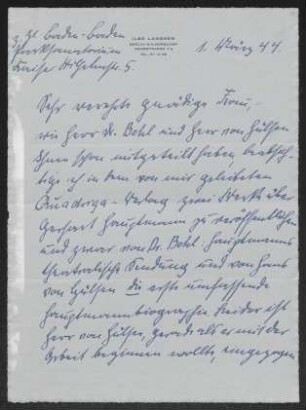 z. Zt. Baden-Baden
Parksanatorium
Kaiser Wilhelmstr. 5.
ILSE LANGNER
1. März 44
Sehr verehrte gnädige Frau,
wie Herr Dr. Bohl und Herr von Hülsen
Ihnen schon mitgeteilt haben, beabsich-
tige ich in dem von mir geleiteten
Quadriga-Verlag zwei Werke über
Gerhart Hauptmann zu veröffentlichen
und zwar von Dr. Bohl: Hauptmanns
theatralische Sendung und von Hans
von Hülsen die erste umfassende
Hauptmannbiographie. Leider ist
Herr von Hülsen, gerade als er mit der
Arbeit beginnen wollte, eingezogen